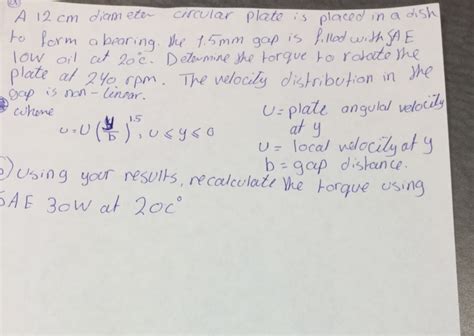 A 12 cm diameter circular plate is placed in a dish
to form a bearing. the 1.5mm gap is filled with SAE
low oil at 20°c. Determine the torque to rotate the
plate at 240 rpm. The velocity distribution in the
gap is non-linear.
where
u=U(y/b)^1.5, u ≤ y ≤ 0
U=plate angular velocity
at y
u = local velocity at y
b = gap distance.
) Using your results, recalculate the torque using
SAE 30W at 20c°